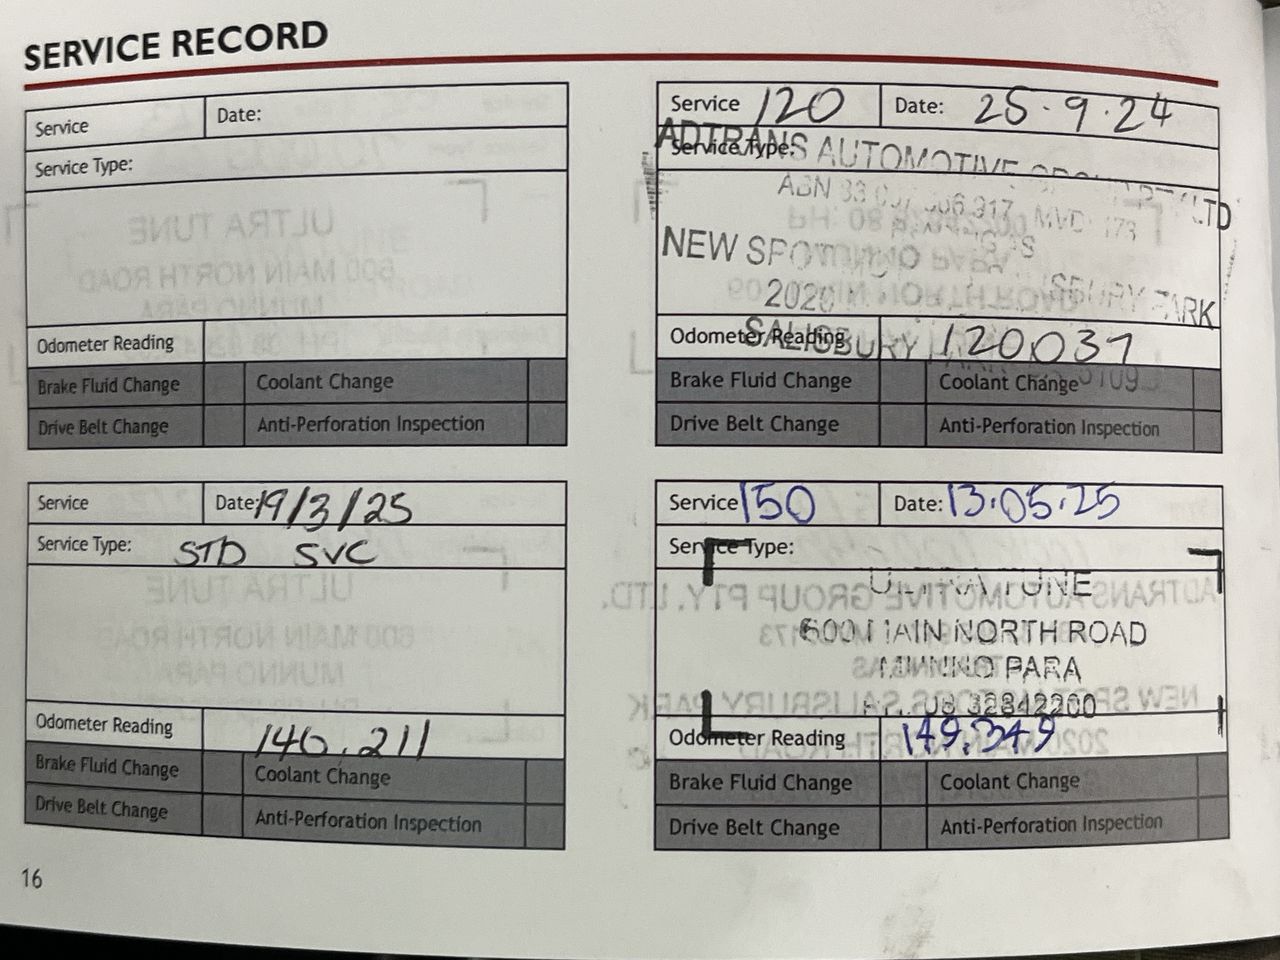 SERVICE RECORD
Service
Date:
Service Type:
Odometer Reading
Brake Fluid Change
Coolant Change
Drive Belt Change
Anti-Perforation Inspection
Service 120
Date: 25.9.24
ADTRANS AUTOMOTIVE
Service Type:
ABN 33
NEW
SBURY PARK
2020
Odometer Reading 120,031
SALISBURY
Brake Fluid Change
Coolant Change
Drive Belt Change
Anti-Perforation Inspection
Service
Date: 19/3/25
Service Type: STD SVC
Odometer Reading
140,211
Brake Fluid Change
Coolant Change
Drive Belt Change
Anti-Perforation Inspection
Service 150
Date: 13.05.25
Service Type:
ULTRA TUNE
600 MAIN NORTH ROAD
MUNNO PARA
PH: 08 82842200
Odometer Reading 149,349
Brake Fluid Change
Coolant Change
Drive Belt Change
Anti-Perforation Inspection
16